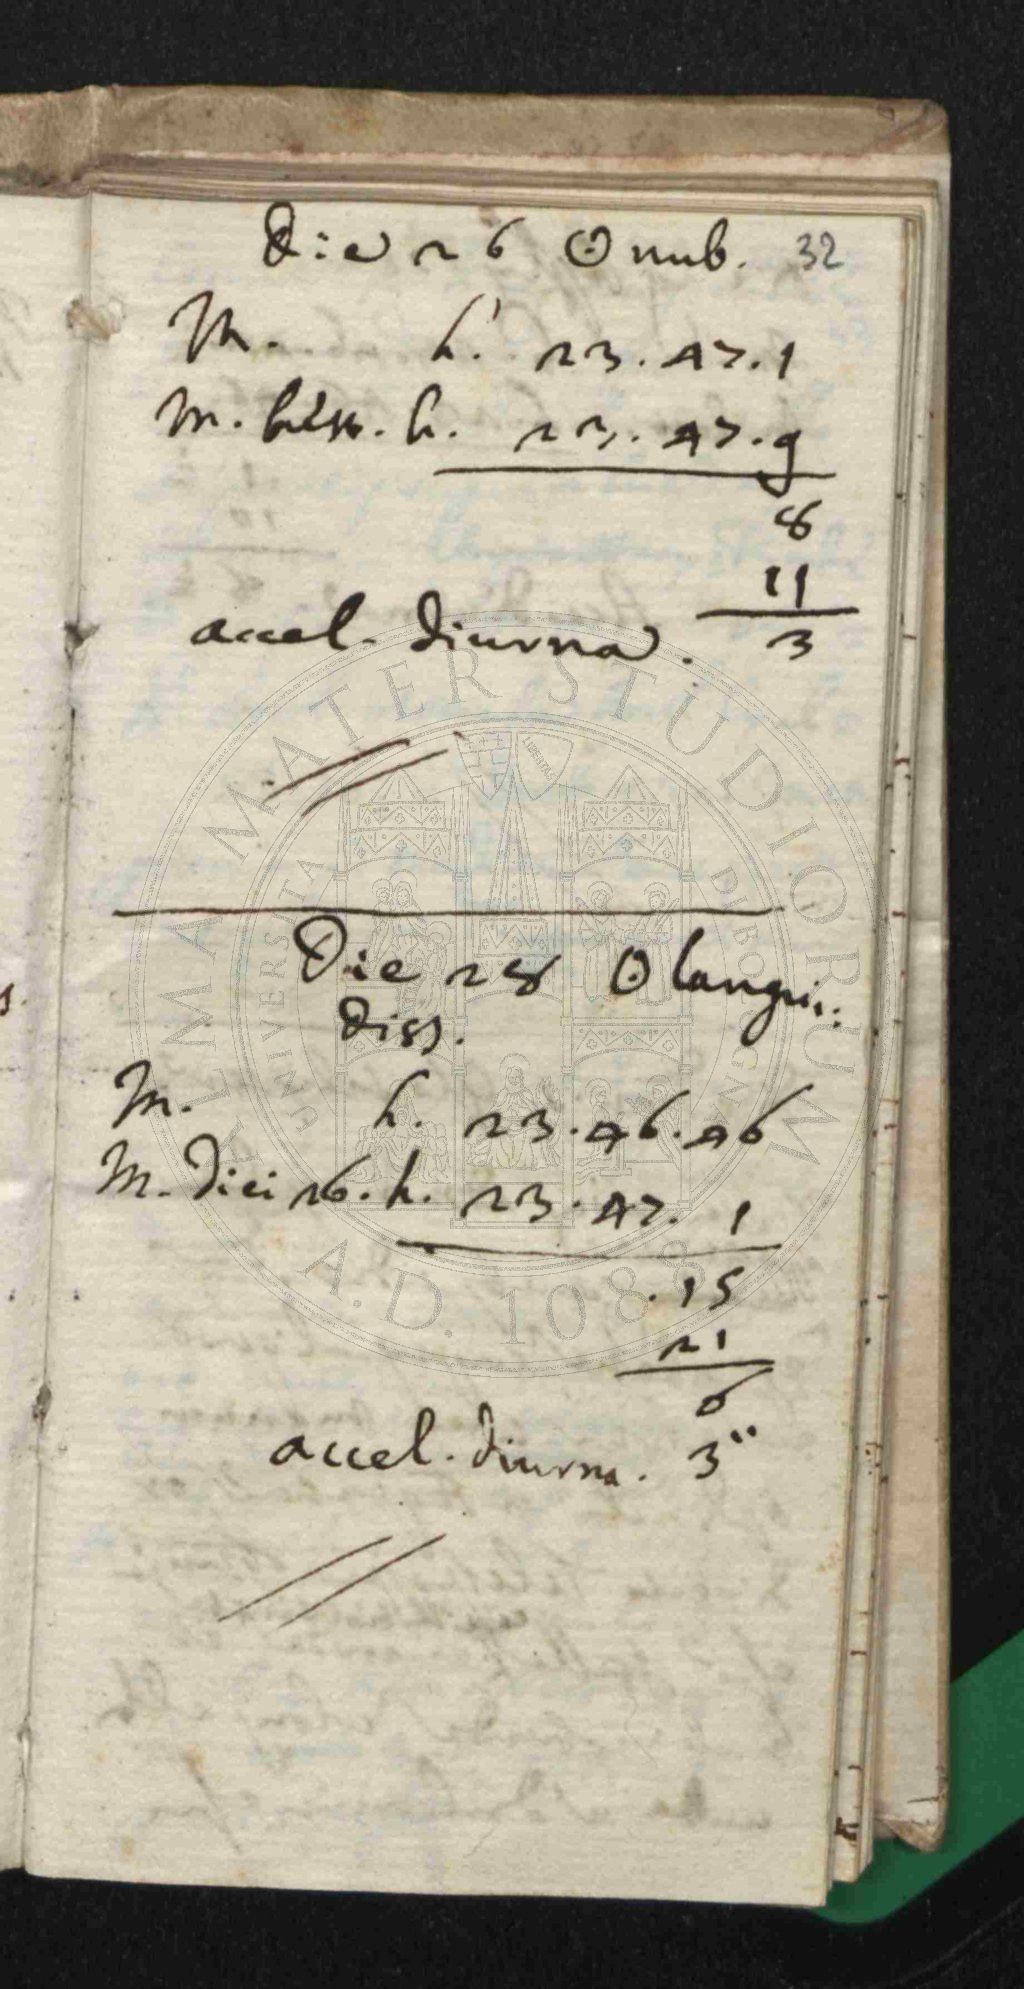 Die 26 ☉ nub. 32
M. h. 23. 47. 1
M. hest. h. 23. 47. 9
8
11
accel. diurna. 3
Die 28 ☉ langui-
diss.
M. h. 23. 46. 46
M. diei 26. h. 23. 47. 1
. 15
21
6
accel. diurna. 3"
ALMA MATER STUDIORUM
A.D. 1088